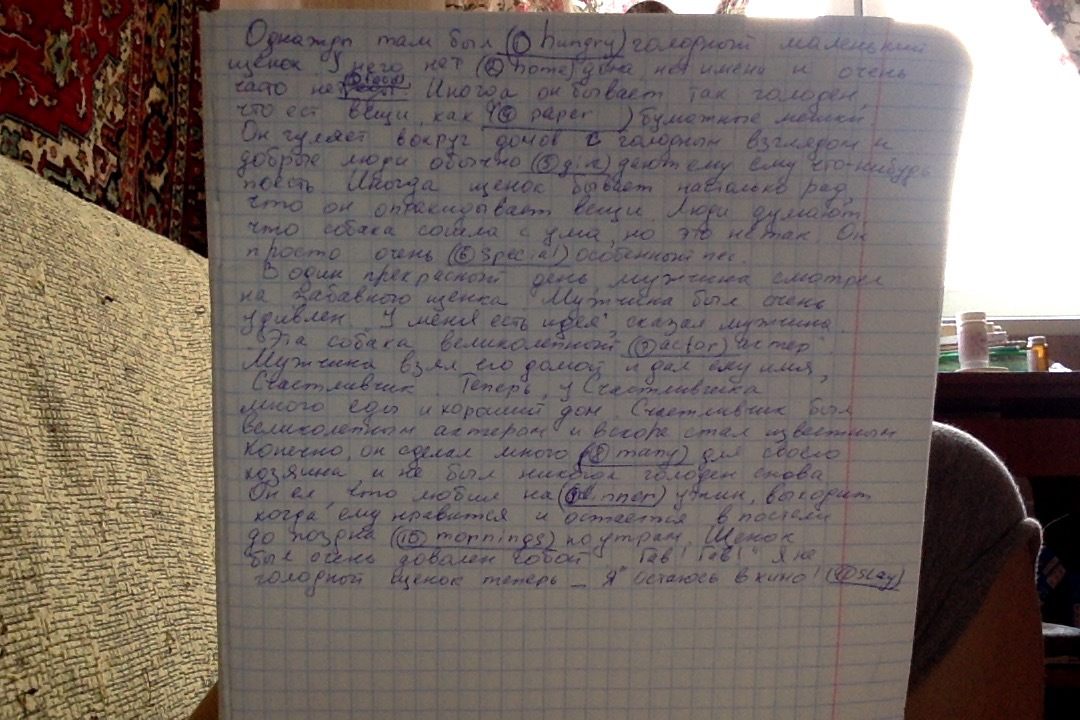 Однажды там был (① hungry) голодный маленький
щенок У него нет (② home) дома, нет имени и очень
часто нет Иногда он бывает так голоден,
что ест вещи, как (④ paper ) бумажные мешки
Он гуляет вокруг домов с голодным взглядом и
добрые люди обычно (⑤ give) дают ему ему что-нибудь
поесть Иногда щенок бывает настолько рад,
что он опрокидывает вещи. Люди думают,
что собака сошла с ума, но это не так. Он
просто очень (⑥ special) особенный пес.
В один прекрасный день, мужчина смотрел
на забавного щенка. Мужчина был очень
удивлен. "У меня есть идея", сказал мужчина.
"Эта собака великолепный (⑦ actor) актер"
Мужчина взял его домой и дал ему имя,
Счастливчик. Теперь, у Счастливчика
много еды и хороший дом. Счастливчик был
великолепным актером и вскоре стал известным
Конечно, он сделал много (⑧ many) для своего
хозяина, и не был никогда голоден снова
Он ел, что любил на (⑨ dinner) ужин, выходит
когда ему нравится и остается в постели
до поздна (⑩ mornings) по утрам. Щенок
был очень доволен собой "Гав! Гав!" Я не
голодный щенок теперь – Я остаюсь в кино! (⑪ stay)